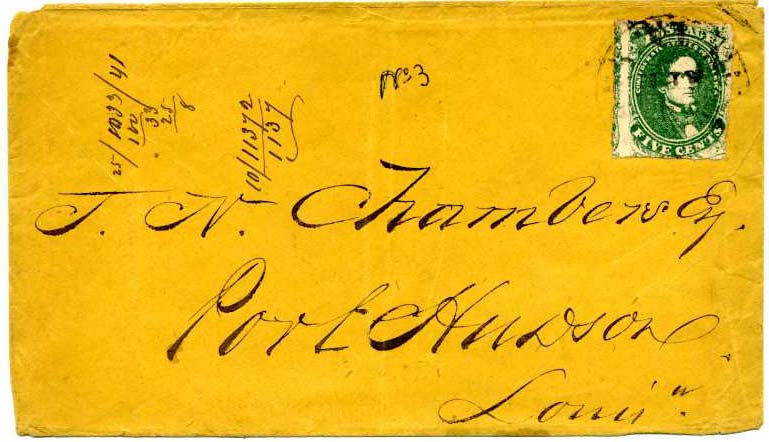 No 3
POSTAGE
CONFEDERATE STATES OF AMERICA
FIVE CENTS
25/1033/41
100
33
25
8
10/11372
1137
T. N. Chambers Esq.
Port Hudson
Loui a.